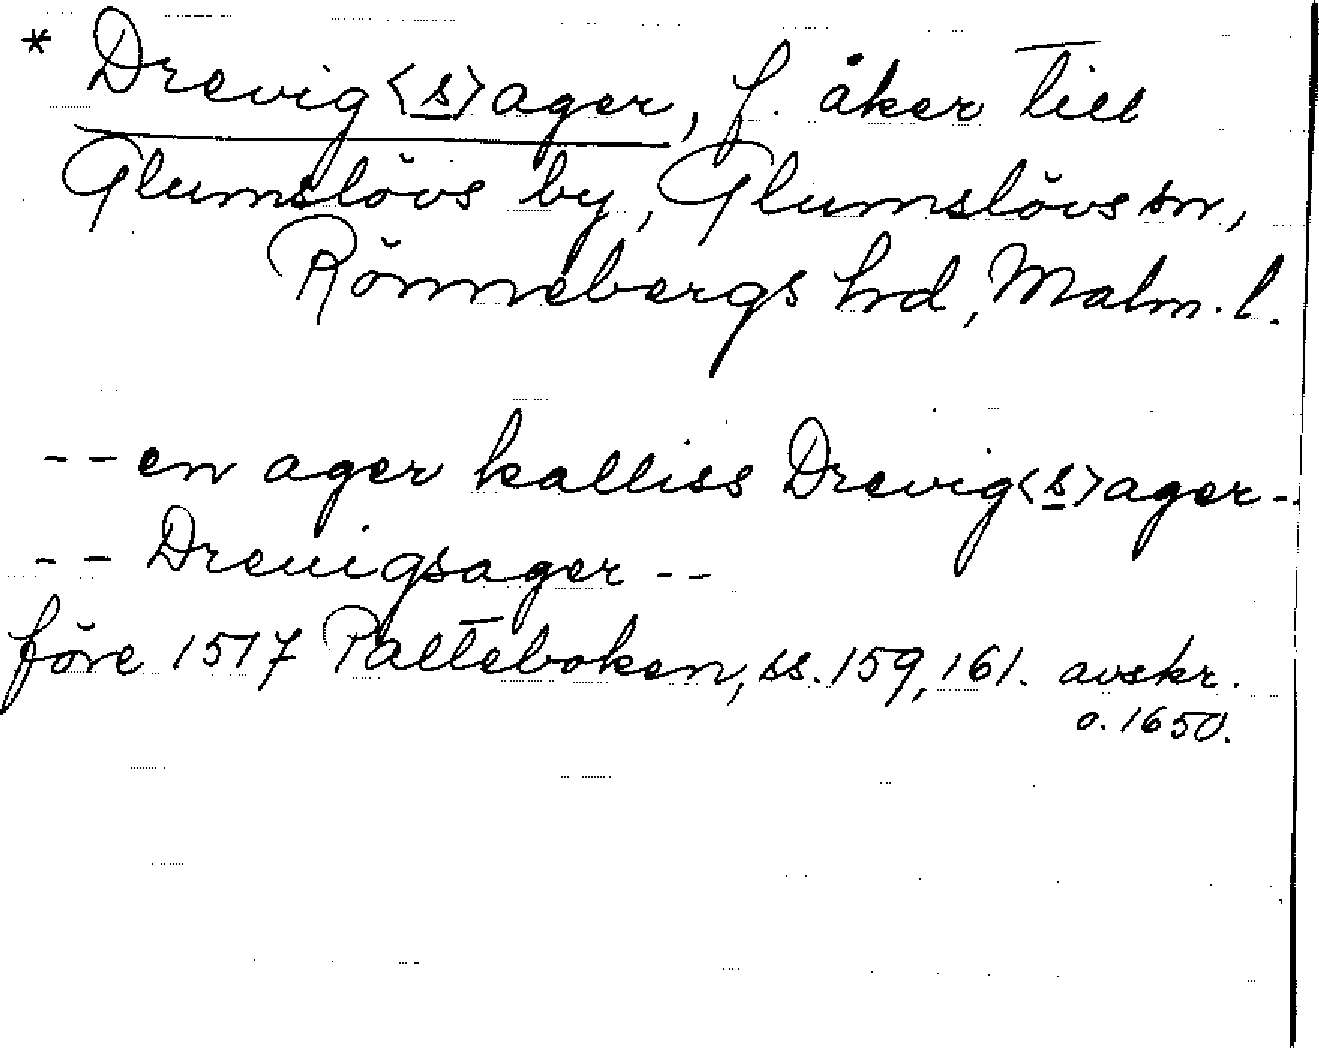 * Drevig<s>ager, f. åker till
Glumslövs by, Glumslövs sn,
Rönnebergs hrd, Malm. l.
-- en ager kalliss Drevig<s>ager --
-- Dreuigsager --
före 1517 Palteboken, ss. 159, 161. avskr.
o. 1650.